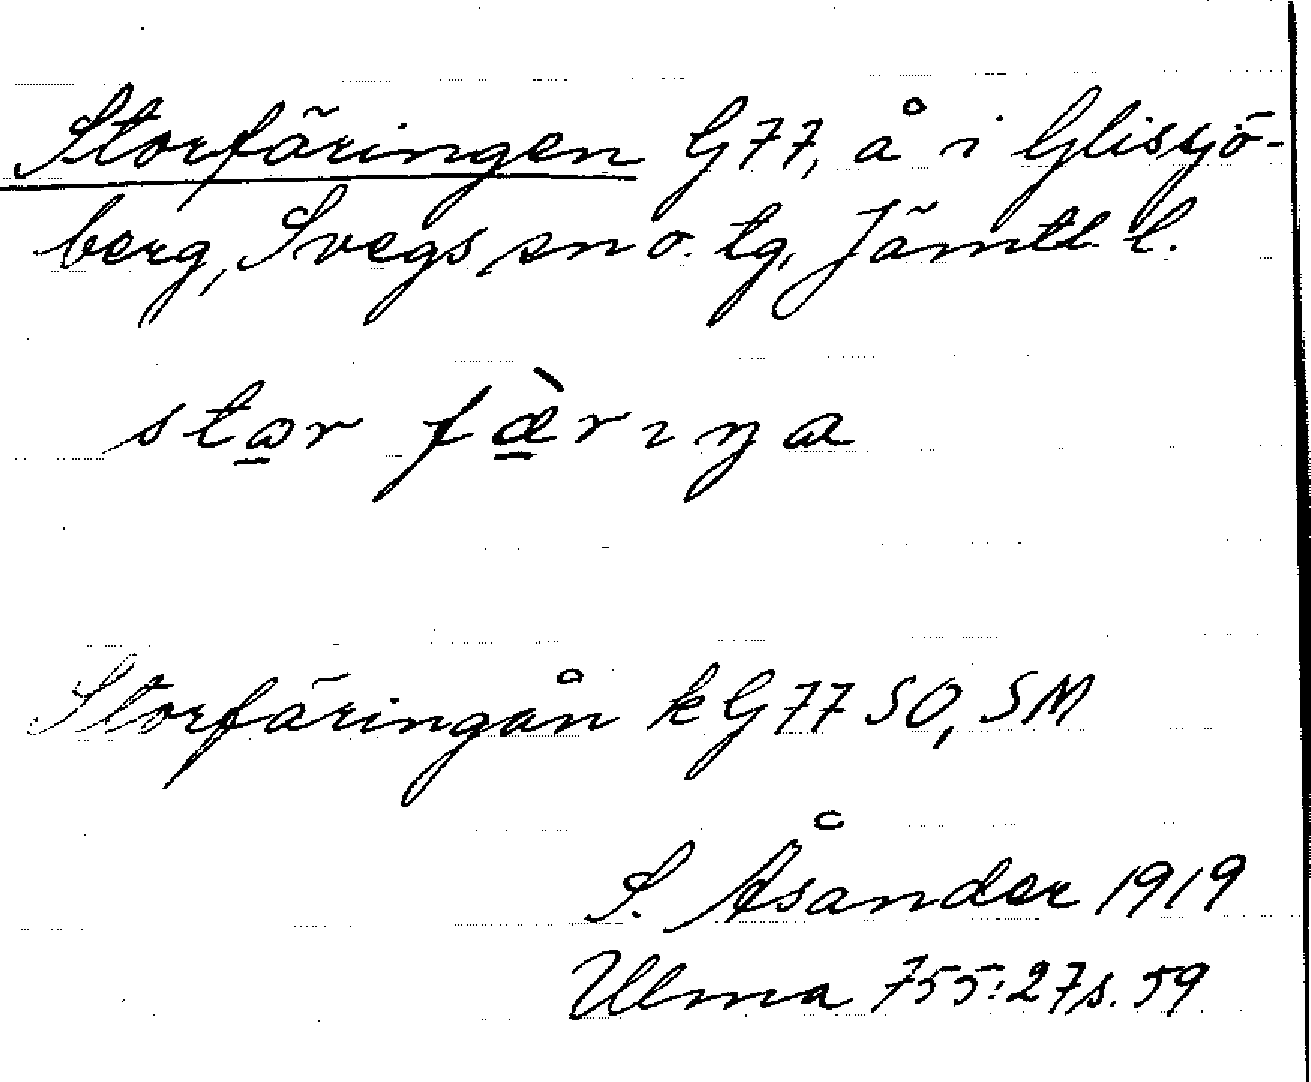 Storfäringen G77, å i Glissjö-
berg, Svegs sn o. tg, Jämtl l.
stω̲r fæ̲̀rıŋa
Storfäringån kG77 SO, SM
S. Åsander 1919
Ulma 755:27 s. 59